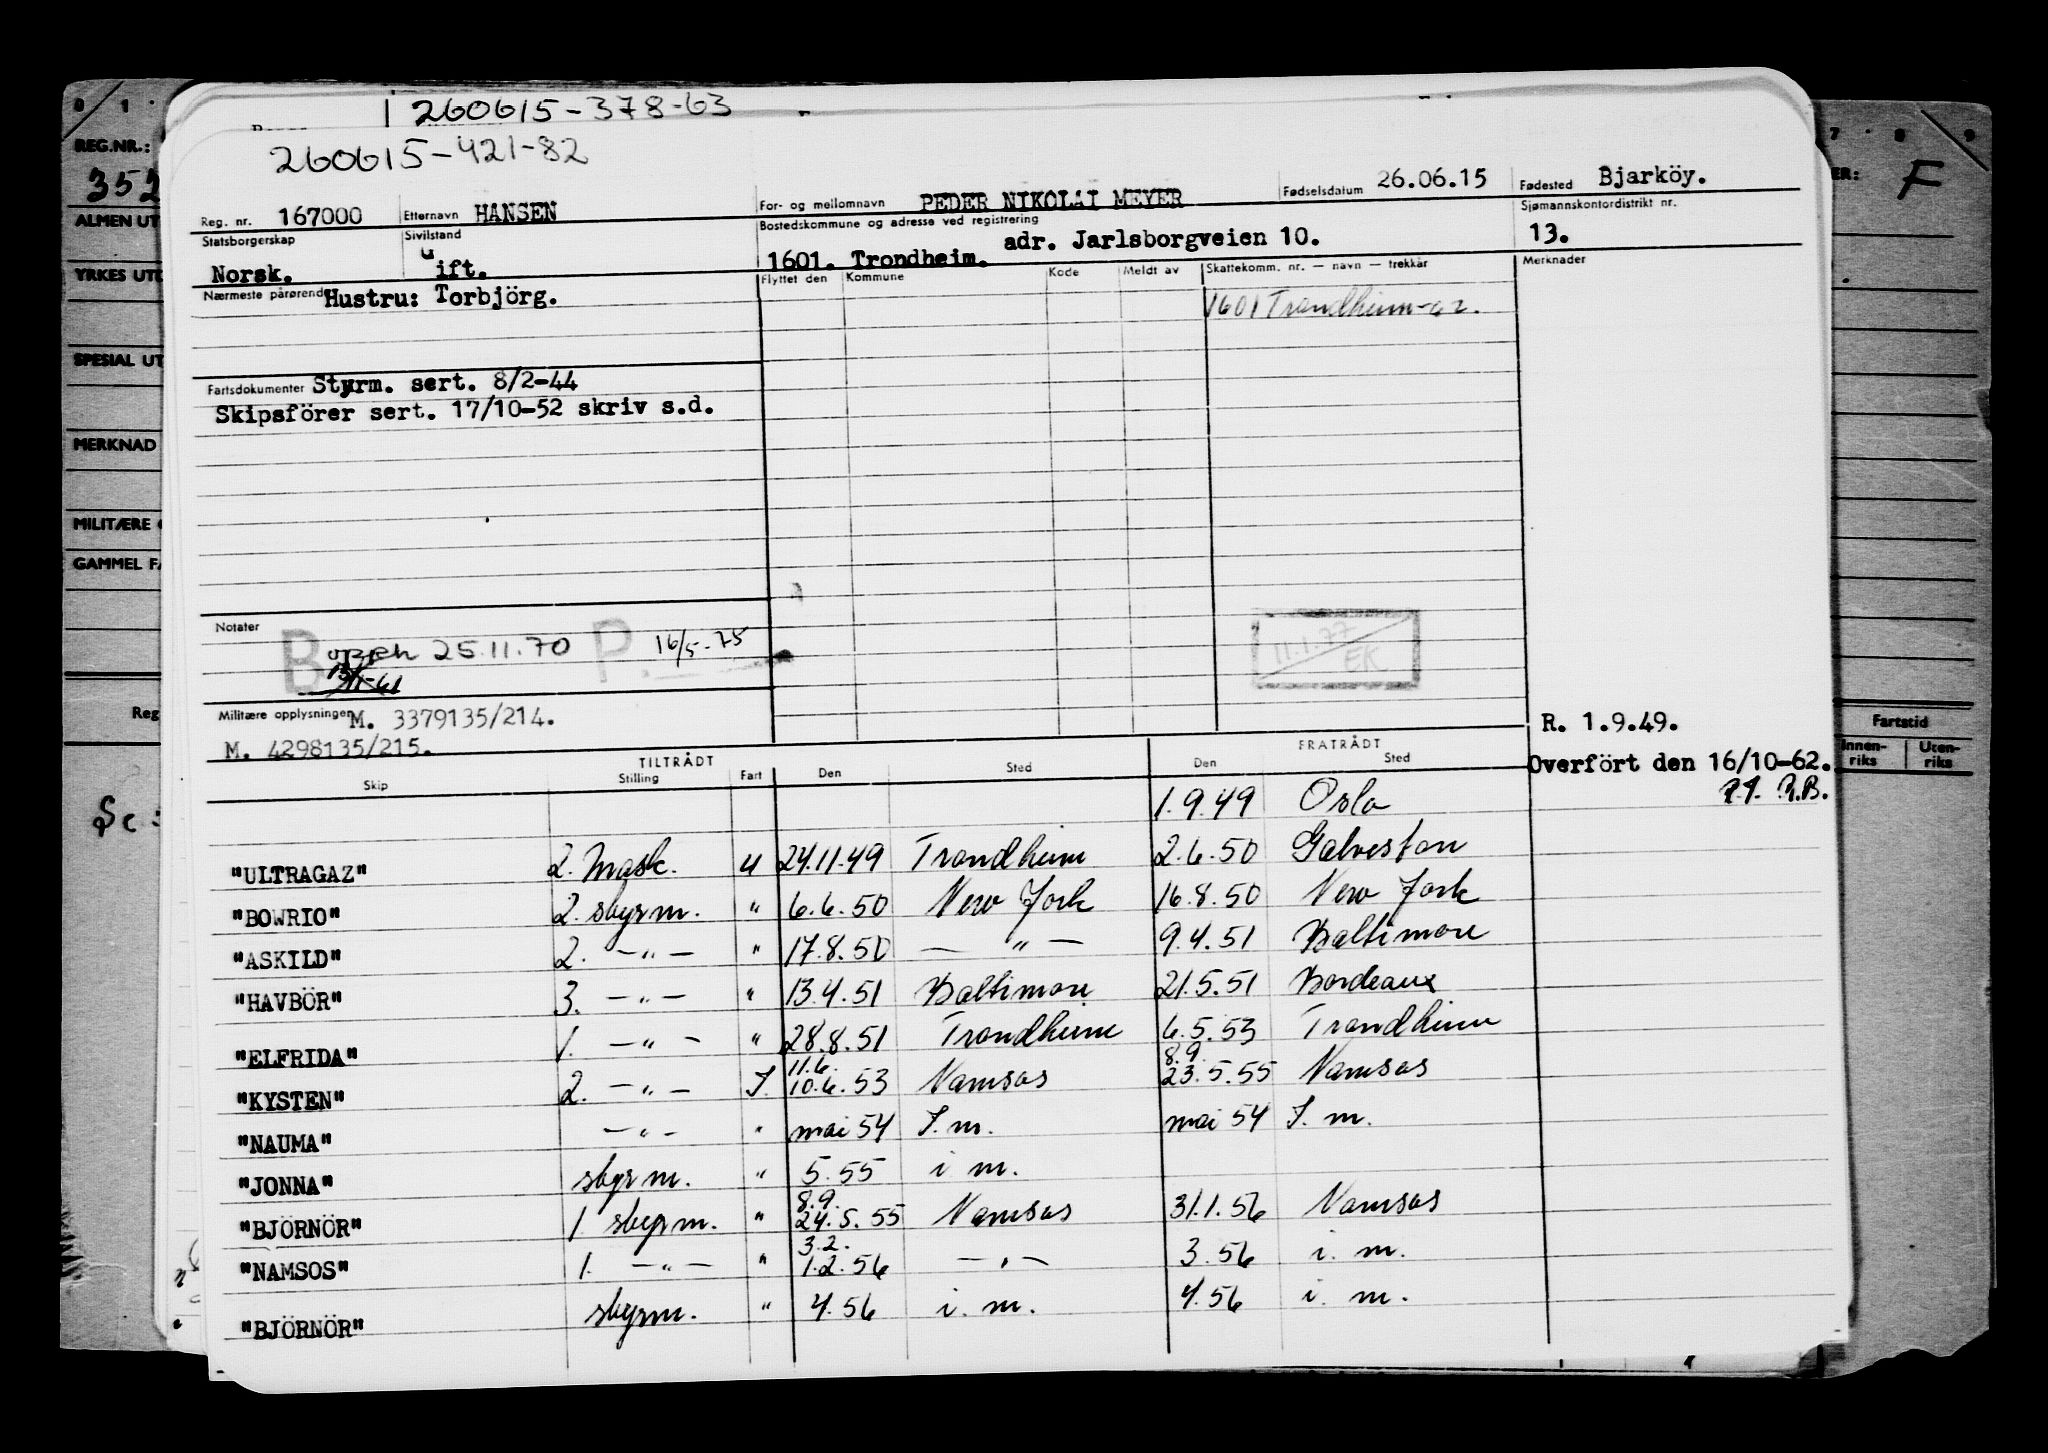 260615-378-63
260615-421-82
0 1 7 8 9
REG.NR.: F
Reg. nr. 167000 Etternavn HANSEN For- og mellomnavn PEDER NIKOLAI MEYER Fødselsdatum 26.06.15 Fødested Bjarköy.
Statsborgerskap Norsk. Sivilstand Gift. Bostedskommune og adresse ved registrering 1601. Trondheim. adr. Jarlsborgveien 10. Sjømannskontordistrikt nr. 13.
Nærmeste pårørende Hustru: Torbjörg. Flyttet den Kommune Kode Meldt av Skattekomm. nr. — navn — trekkår Merknader
1601 Trondheim-62.
Fartsdokumenter Styrm. sert. 8/2-44
Skipsförer sert. 17/10-52 skriv s.d.
Notater B 25.11.70 P. 16/5-75
11.1.77
EK
Militære opplysninger M. 3379135/214.
M. 4298135/215.
R. 1.9.49.
Overfört den 16/10-62.
TILTRÅDT FRATRÅDT
Skip Stilling Fart Den Sted Den Sted
1.9.49 Oslo
"ULTRAGAZ" 2. Mask. U 24.11.49 Trondheim 2.6.50 Galveston
"BOWRIO" 2. styrm. " 6.6.50 New York 16.8.50 New York
"ASKILD" 2. —"— " 17.8.50 — " — 9.4.51 Baltimore
"HAVBÖR" 3. —"— " 13.4.51 Baltimore 21.5.51 Bordeaux
"ELFRIDA" 1. —"— " 28.8.51 Trondheim 6.5.53 Trondheim
11.6. 8.9.
"KYSTEN" 2. —"— I. 10.6.53 Namsos 23.5.55 Namsos
"NAUMA" —"— " mai 54 I. m. mai 54 I. m.
"JONNA" styrm. " 5.55 i m.
8.9.
"BJÖRNÖR" 1 styrm. " 24.5.55 Namsos 31.1.56 Namsos
3.2.
"NAMSOS" 1. —"— " 1.2.56 —"— 3.56 i. m.
"BJÖRNÖR" styrm. " 4.56 i. m. 4.56 i. m.
ALMEN UT
YRKES UT
SPESIAL UT
MERKNAD
MILITÆRE
GAMMEL FA
Reg
Fartstid
Innen-riks Uten-riks